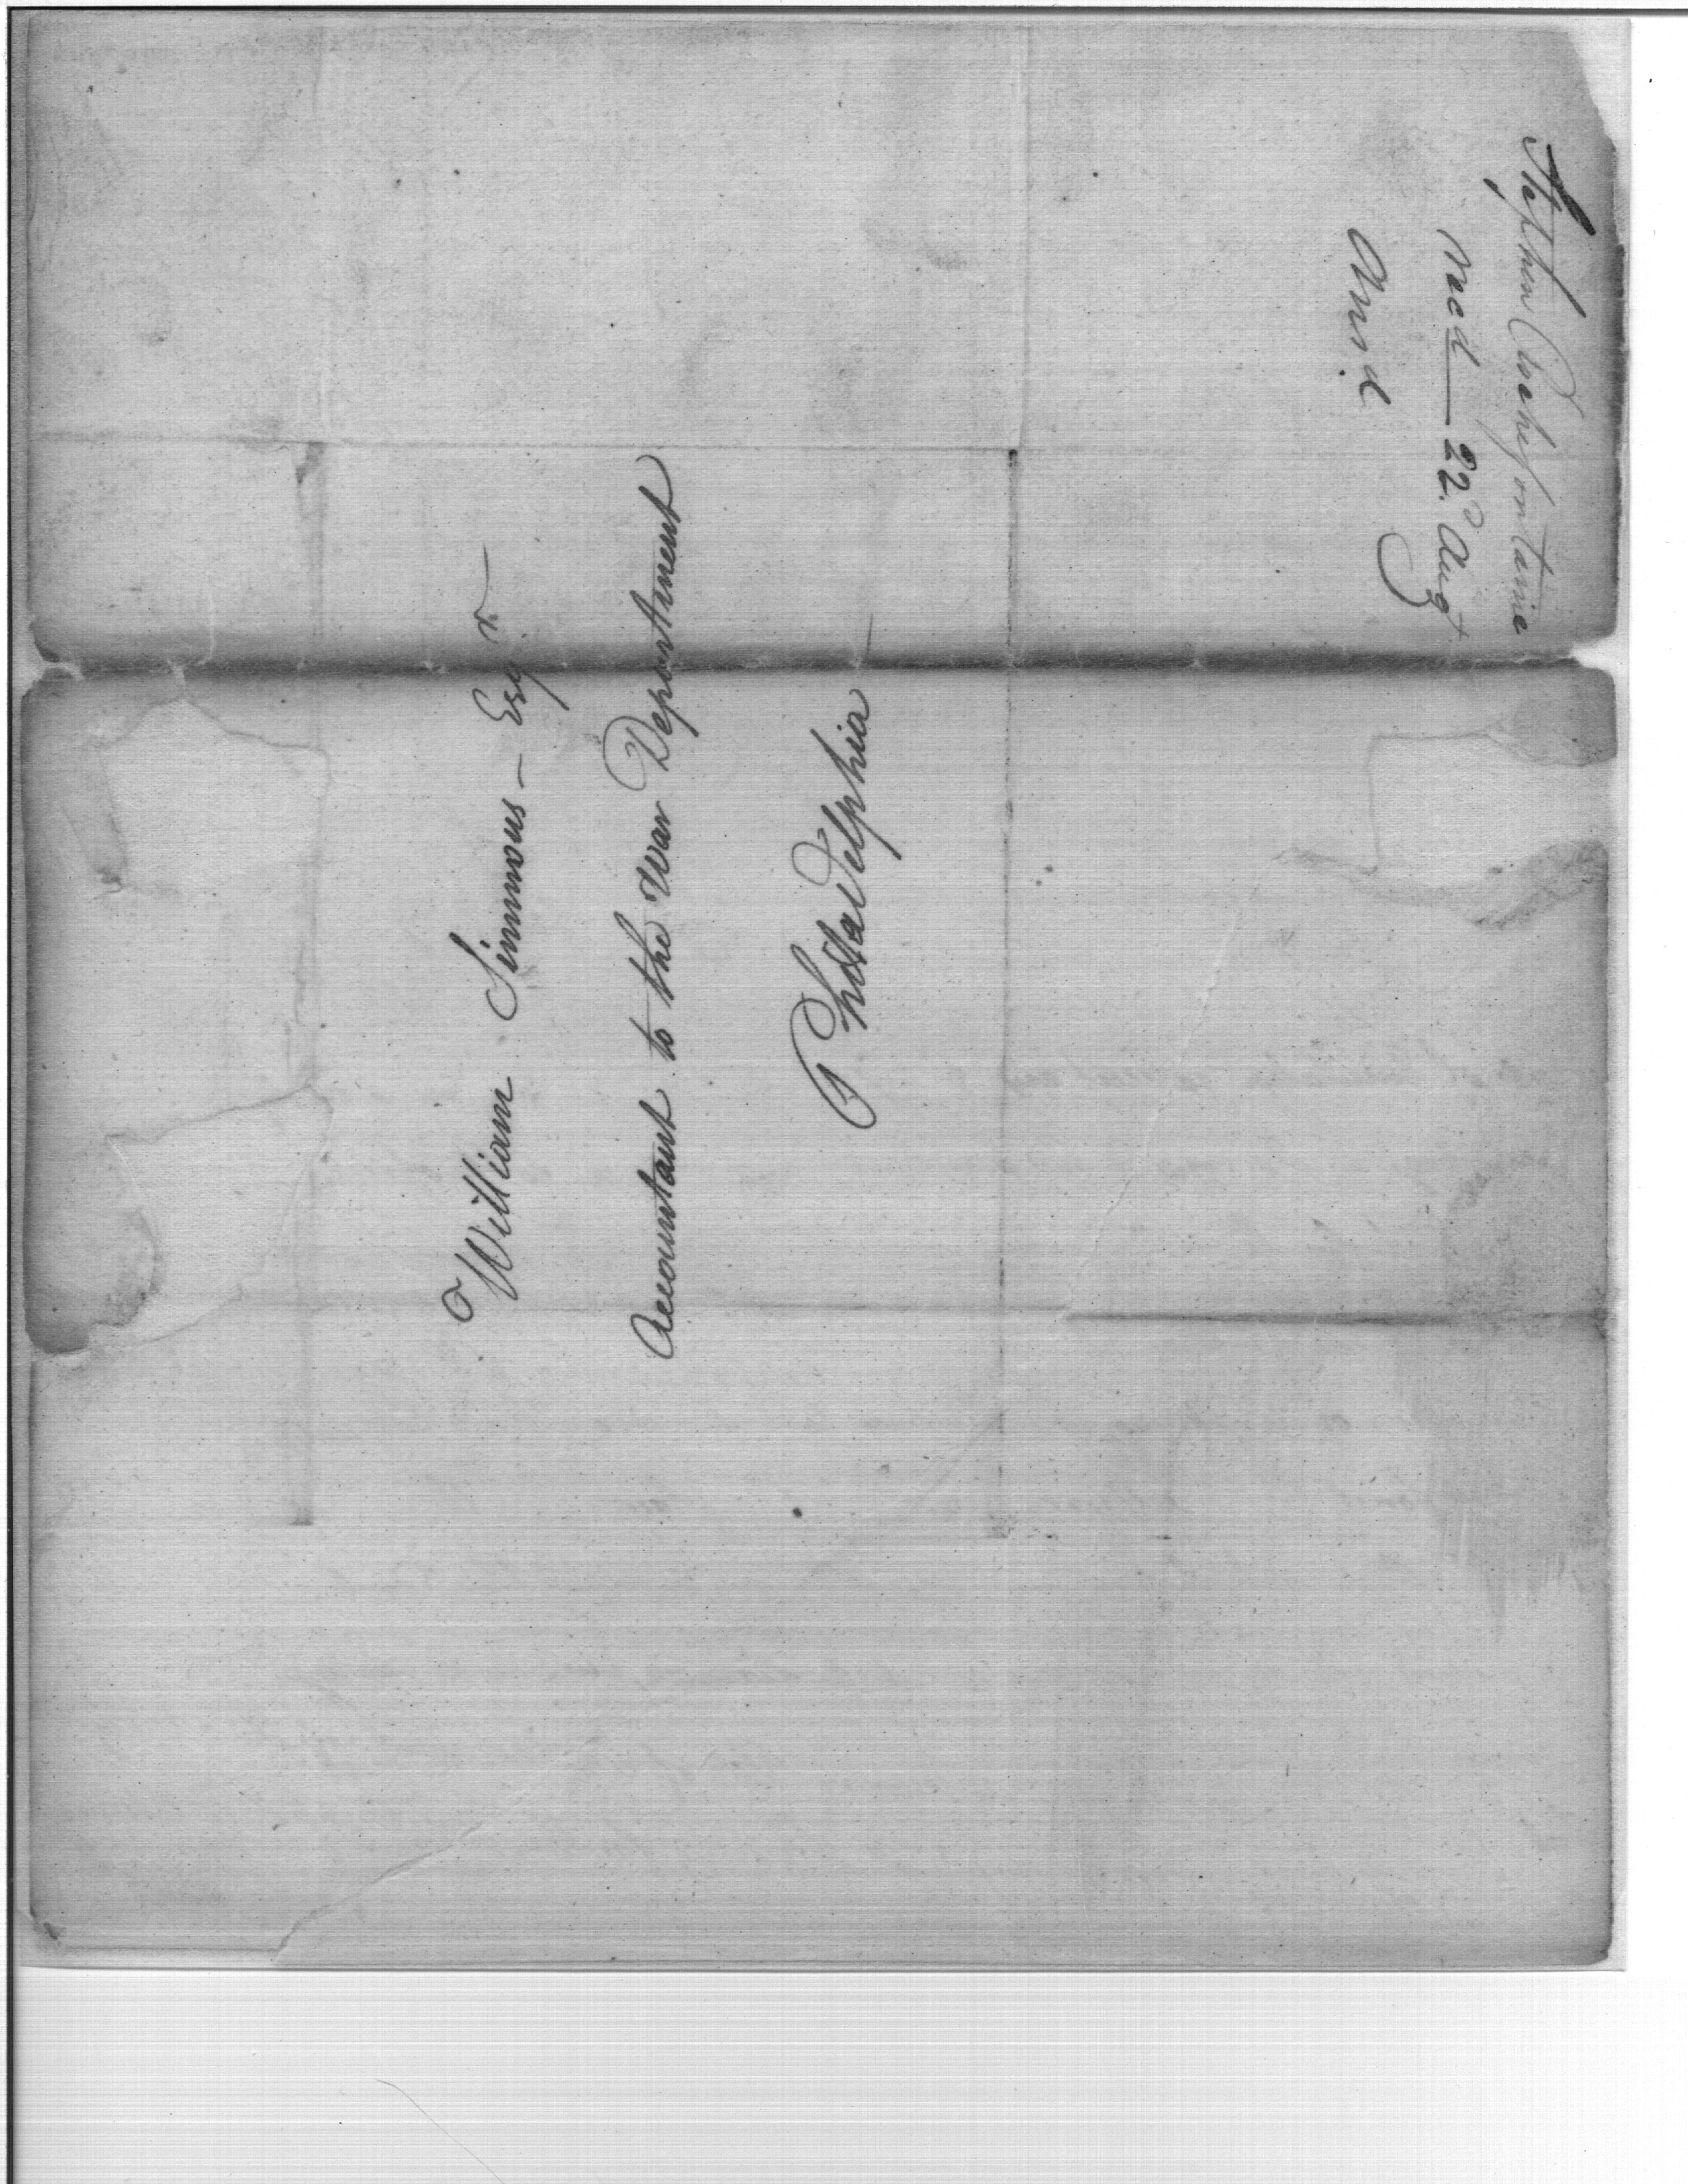 William Simmons — Esqr —
Accountant to the War Department
Philadelphia —
Stephen
recd — 22d Augt
Ansd